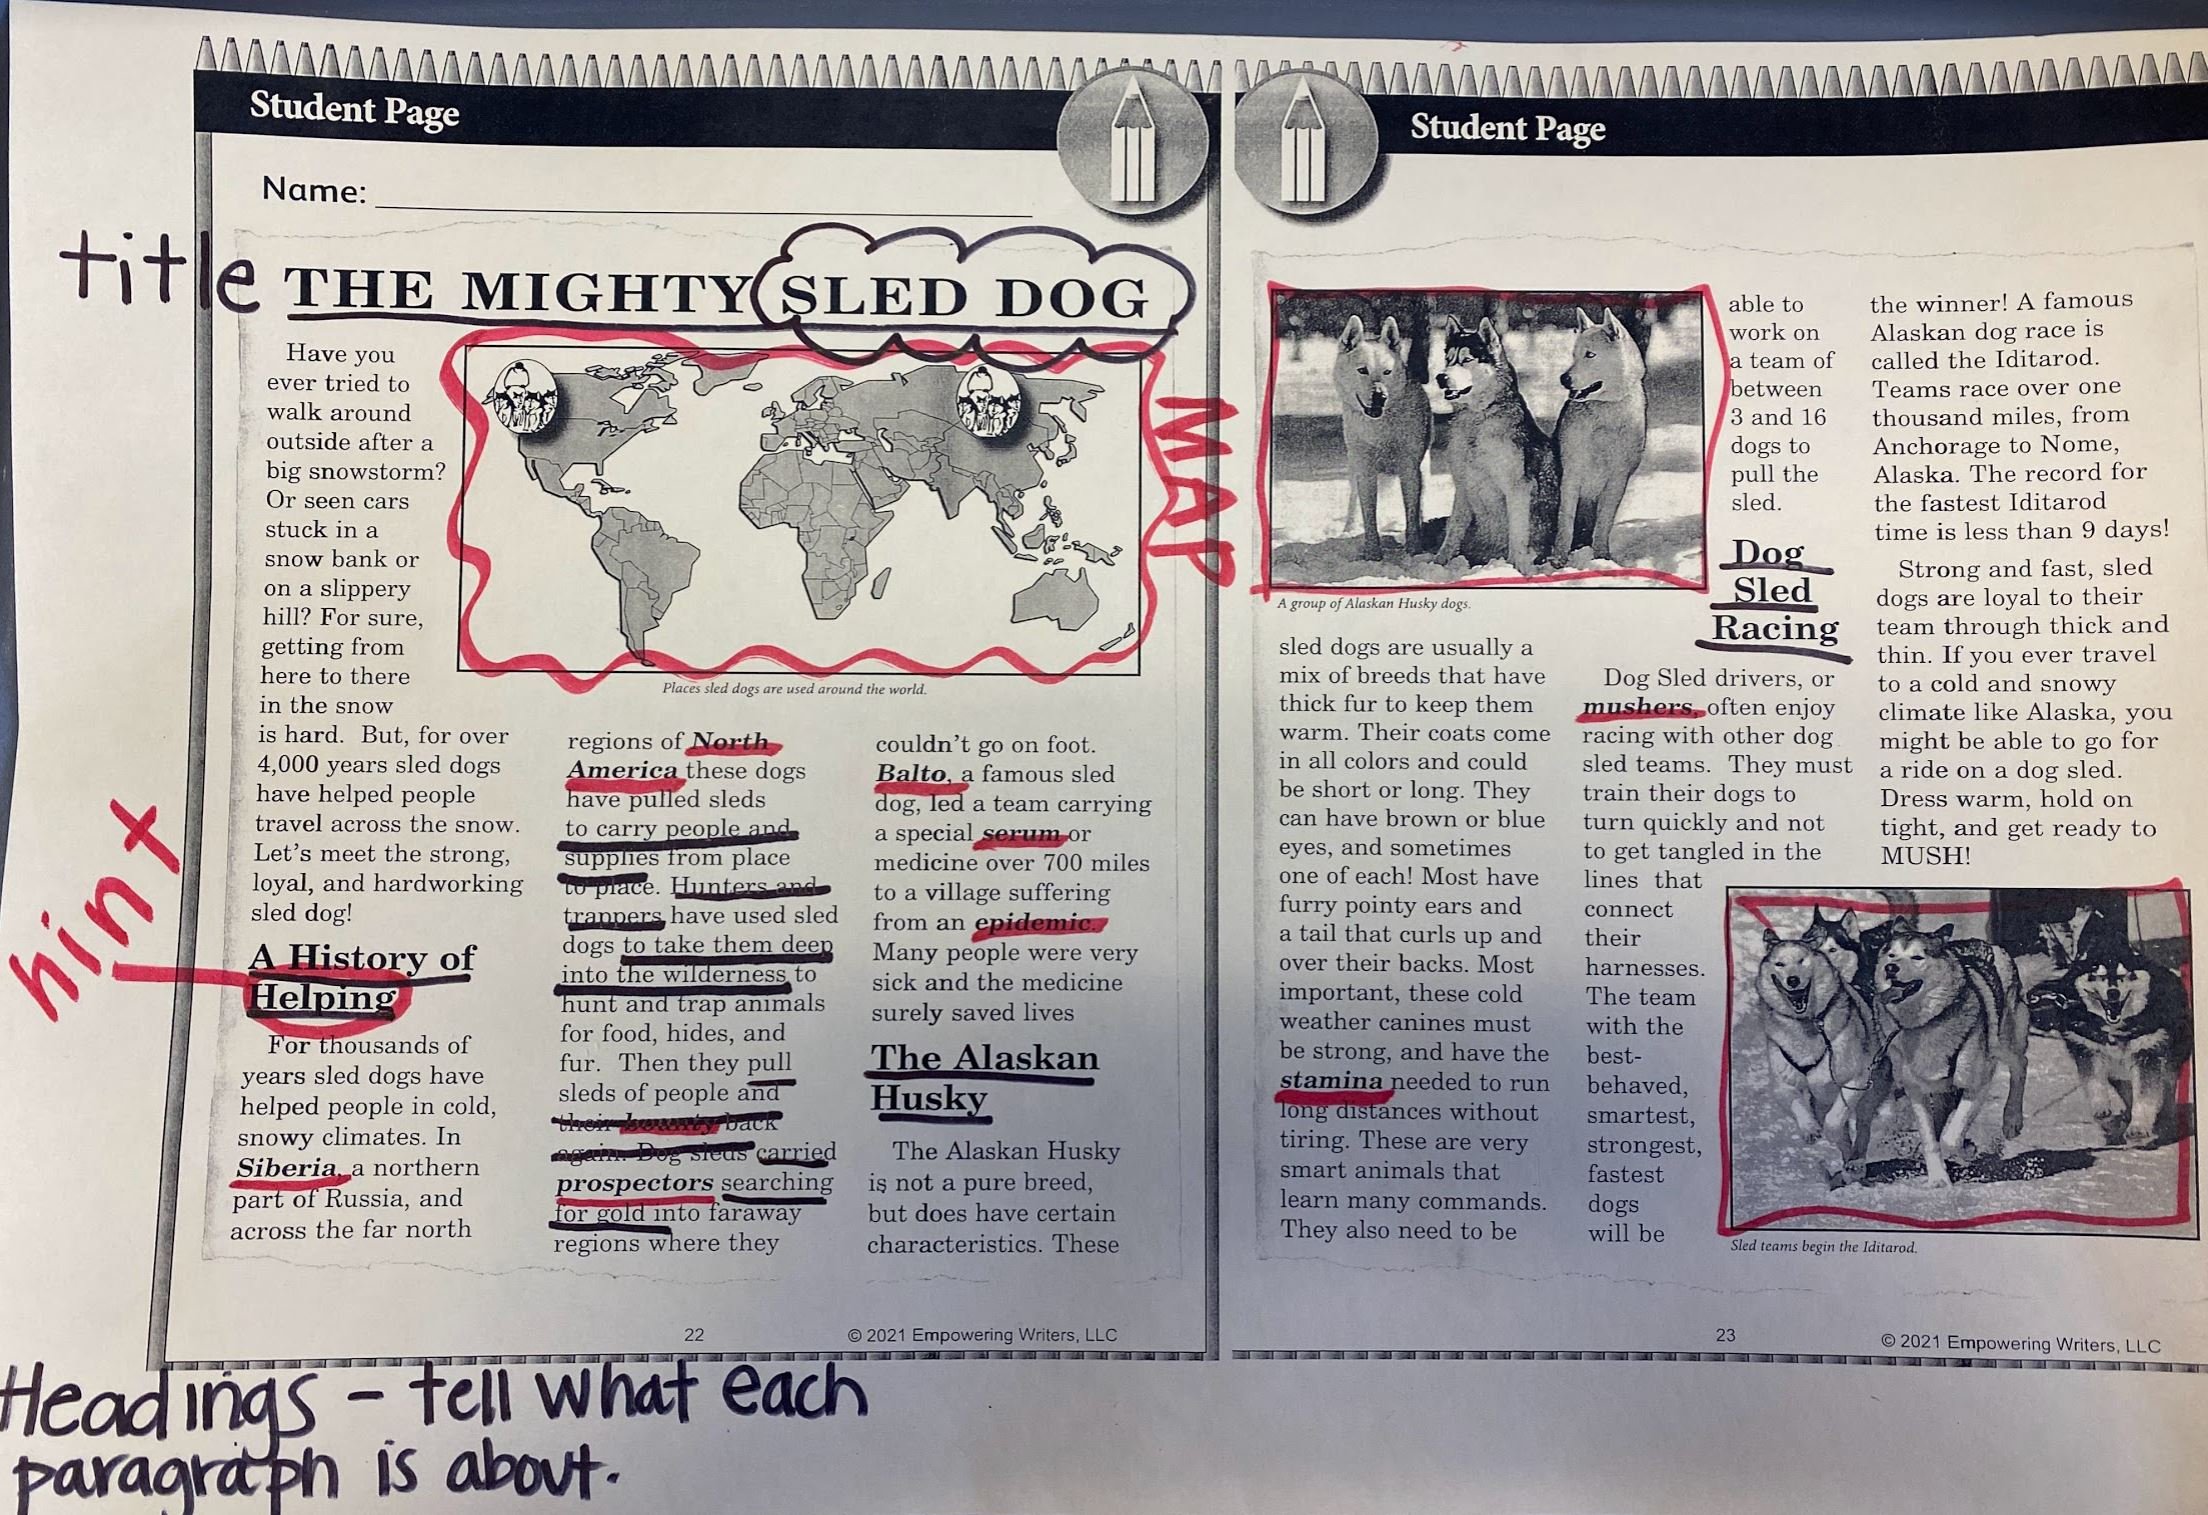 Student Page
Name:
title
THE MIGHTY SLED DOG
Have you
ever tried to
walk around
outside after a
big snowstorm?
Or seen cars
stuck in a
snow bank or
on a slippery
hill? For sure,
getting from
here to there
in the snow
is hard. But, for over
4,000 years sled dogs
have helped people
travel across the snow.
Let's meet the strong,
loyal, and hardworking
sled dog!
hint
A History of
Helping
For thousands of
years sled dogs have
helped people in cold,
snowy climates. In
Siberia, a northern
part of Russia, and
across the far north
MAP
Places sled dogs are used around the world.
regions of North
America these dogs
have pulled sleds
to carry people and
supplies from place
to place. Hunters and
trappers have used sled
dogs to take them deep
into the wilderness to
hunt and trap animals
for food, hides, and
fur. Then they pull
sleds of people and
their bounty back
again. Dog sleds carried
prospectors searching
for gold into faraway
regions where they
couldn't go on foot.
Balto, a famous sled
dog, led a team carrying
a special serum or
medicine over 700 miles
to a village suffering
from an epidemic.
Many people were very
sick and the medicine
surely saved lives
The Alaskan
Husky
The Alaskan Husky
is not a pure breed,
but does have certain
characteristics. These
22
© 2021 Empowering Writers, LLC
Headings - tell what each
paragraph is about.
Student Page
A group of Alaskan Husky dogs.
sled dogs are usually a
mix of breeds that have
thick fur to keep them
warm. Their coats come
in all colors and could
be short or long. They
can have brown or blue
eyes, and sometimes
one of each! Most have
furry pointy ears and
a tail that curls up and
over their backs. Most
important, these cold
weather canines must
be strong, and have the
stamina needed to run
long distances without
tiring. These are very
smart animals that
learn many commands.
They also need to be
able to
work on
a team of
between
3 and 16
dogs to
pull the
sled.
Dog
Sled
Racing
Dog Sled drivers, or
mushers, often enjoy
racing with other dog
sled teams. They must
train their dogs to
turn quickly and not
to get tangled in the
lines that
connect
their
harnesses.
The team
with the
best-
behaved,
smartest,
strongest,
fastest
dogs
will be
the winner! A famous
Alaskan dog race is
called the Iditarod.
Teams race over one
thousand miles, from
Anchorage to Nome,
Alaska. The record for
the fastest Iditarod
time is less than 9 days!
Strong and fast, sled
dogs are loyal to their
team through thick and
thin. If you ever travel
to a cold and snowy
climate like Alaska, you
might be able to go for
a ride on a dog sled.
Dress warm, hold on
tight, and get ready to
MUSH!
Sled teams begin the Iditarod.
23
© 2021 Empowering Writers, LLC